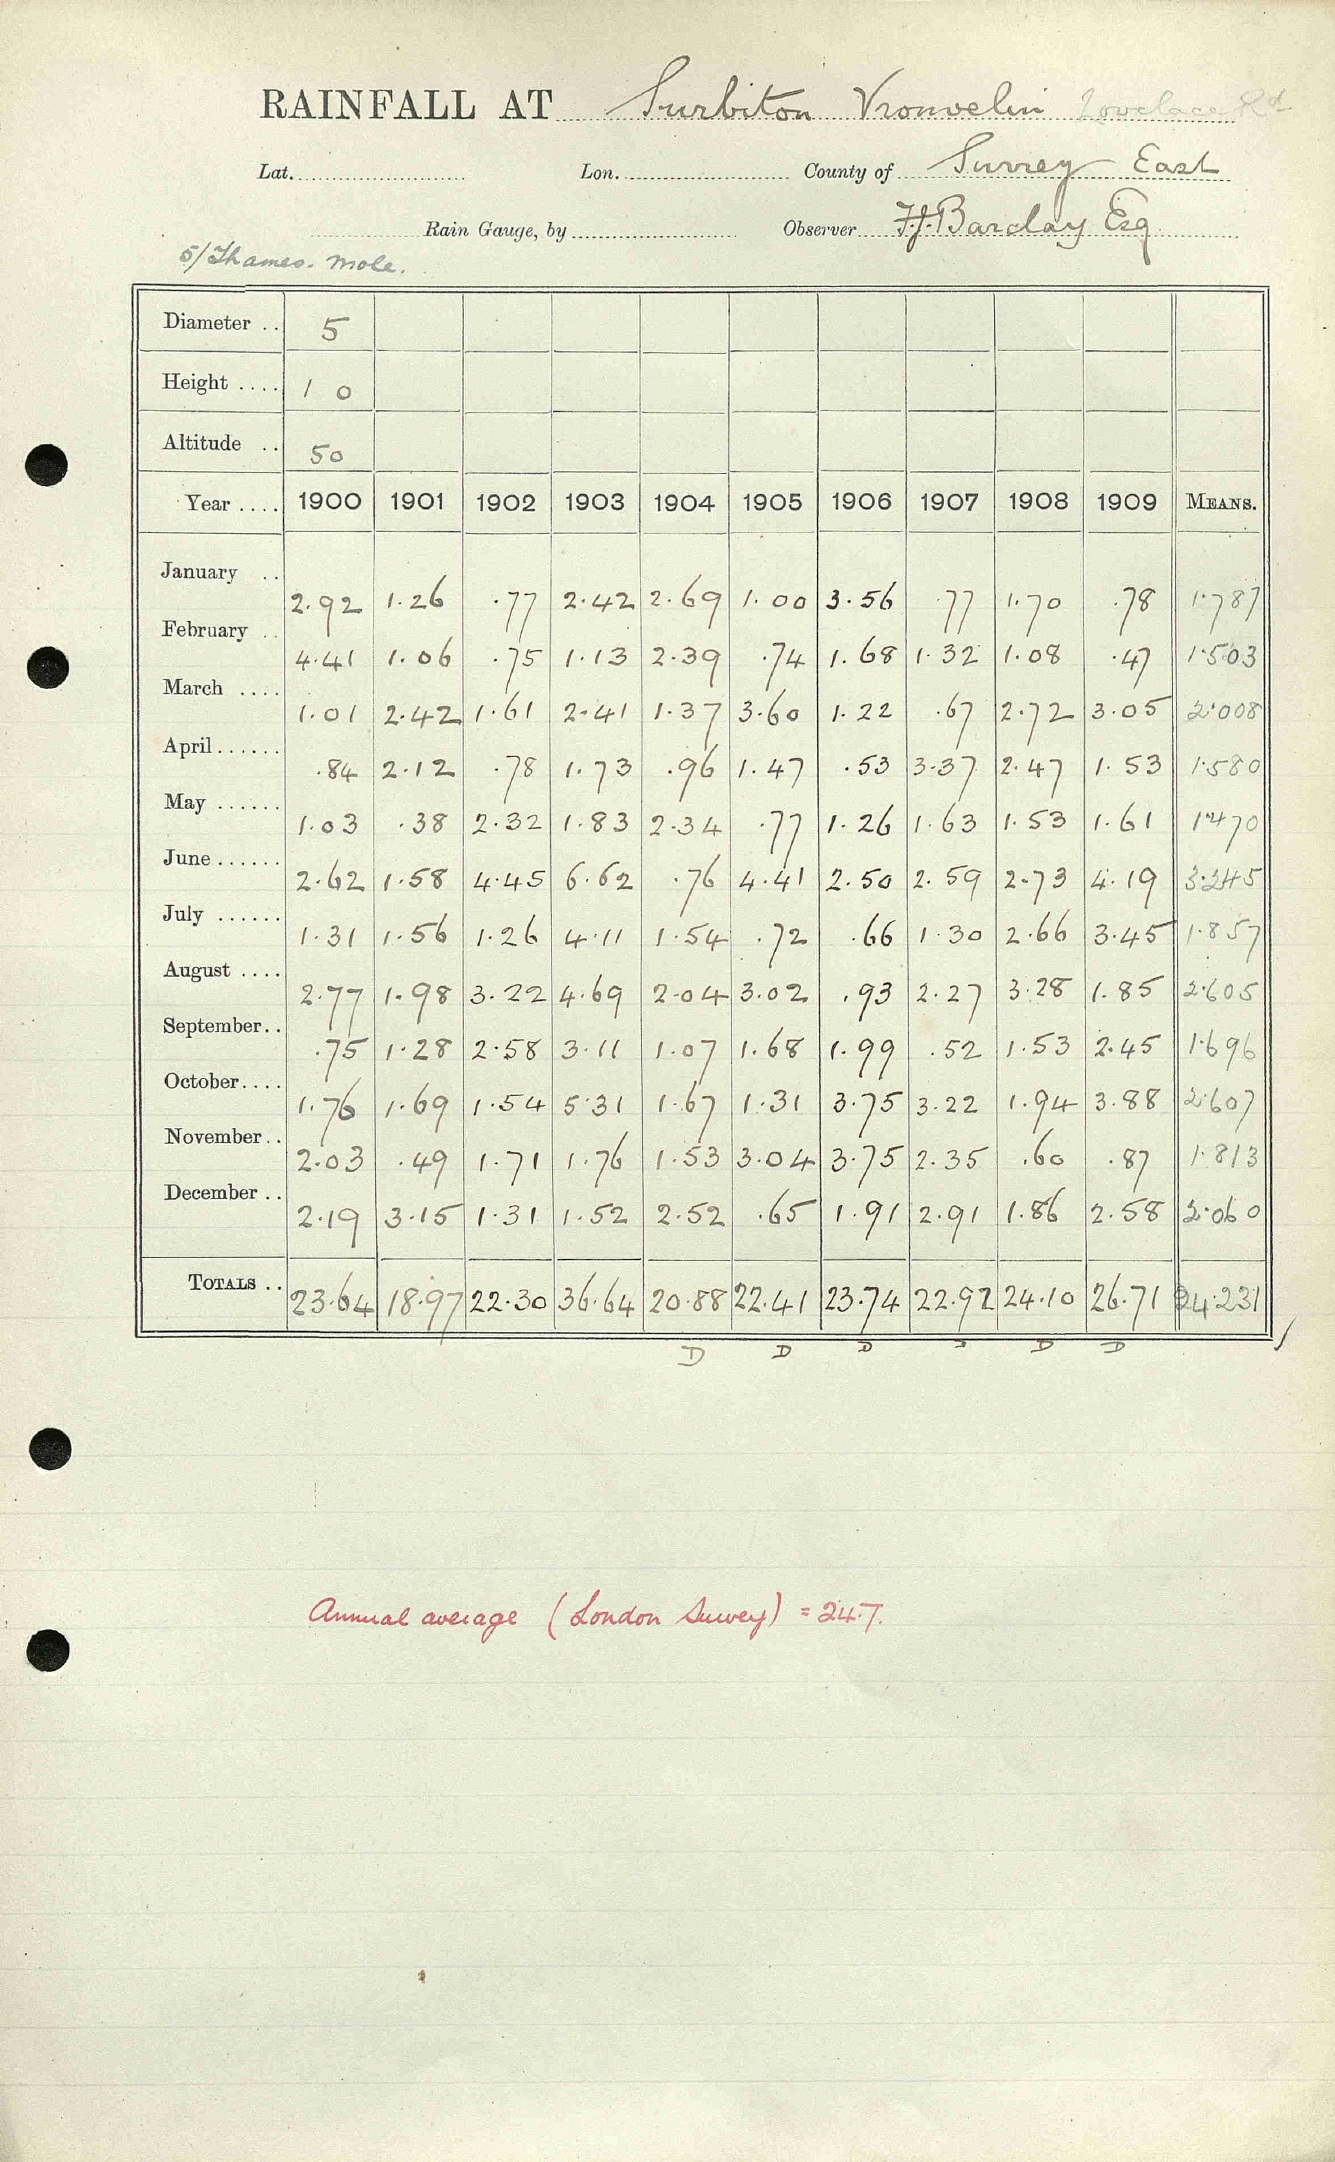 RAINFALL AT Surbiton Vronvelin Lovelace Rd
Lat. Lon. County of Surrey East
Rain Gauge, by Observer F.J. Barclay Esq
5/Thames. Mole.
Diameter .. 5
Height .... 1 0
Altitude .. 50
Year .... 1900 1901 1902 1903 1904 1905 1906 1907 1908 1909 MEANS.
January .. 2.92 1.26 .77 2.42 2.69 1.00 3.56 .77 1.70 .78 1.787
February .. 4.41 1.06 .75 1.13 2.39 .74 1.68 1.32 1.08 .47 1.503
March .... 1.01 2.42 1.61 2.41 1.37 3.60 1.22 .67 2.72 3.05 2.008
April...... .84 2.12 .78 1.73 .96 1.47 .53 3.37 2.47 1.53 1.580
May ...... 1.03 .38 2.32 1.83 2.34 .77 1.26 1.63 1.53 1.61 1.470
June...... 2.62 1.58 4.45 6.62 .76 4.41 2.50 2.59 2.73 4.19 3.245
July ...... 1.31 1.56 1.26 4.11 1.54 .72 .66 1.30 2.66 3.45 1.857
August .... 2.77 1.98 3.22 4.69 2.04 3.02 .93 2.27 3.28 1.85 2.605
September.. .75 1.28 2.58 3.11 1.07 1.68 1.99 .52 1.53 2.45 1.696
October.... 1.76 1.69 1.54 5.31 1.67 1.31 3.75 3.22 1.94 3.88 2.607
November.. 2.03 .49 1.71 1.76 1.53 3.04 3.75 2.35 .60 .87 1.813
December .. 2.19 3.15 1.31 1.52 2.52 .65 1.91 2.91 1.86 2.58 2.060
TOTALS .. 23.64 18.97 22.30 36.64 20.88 22.41 23.74 22.92 24.10 26.71 24.231
D D D D D D
Annual average (London Survey) = 24.7.